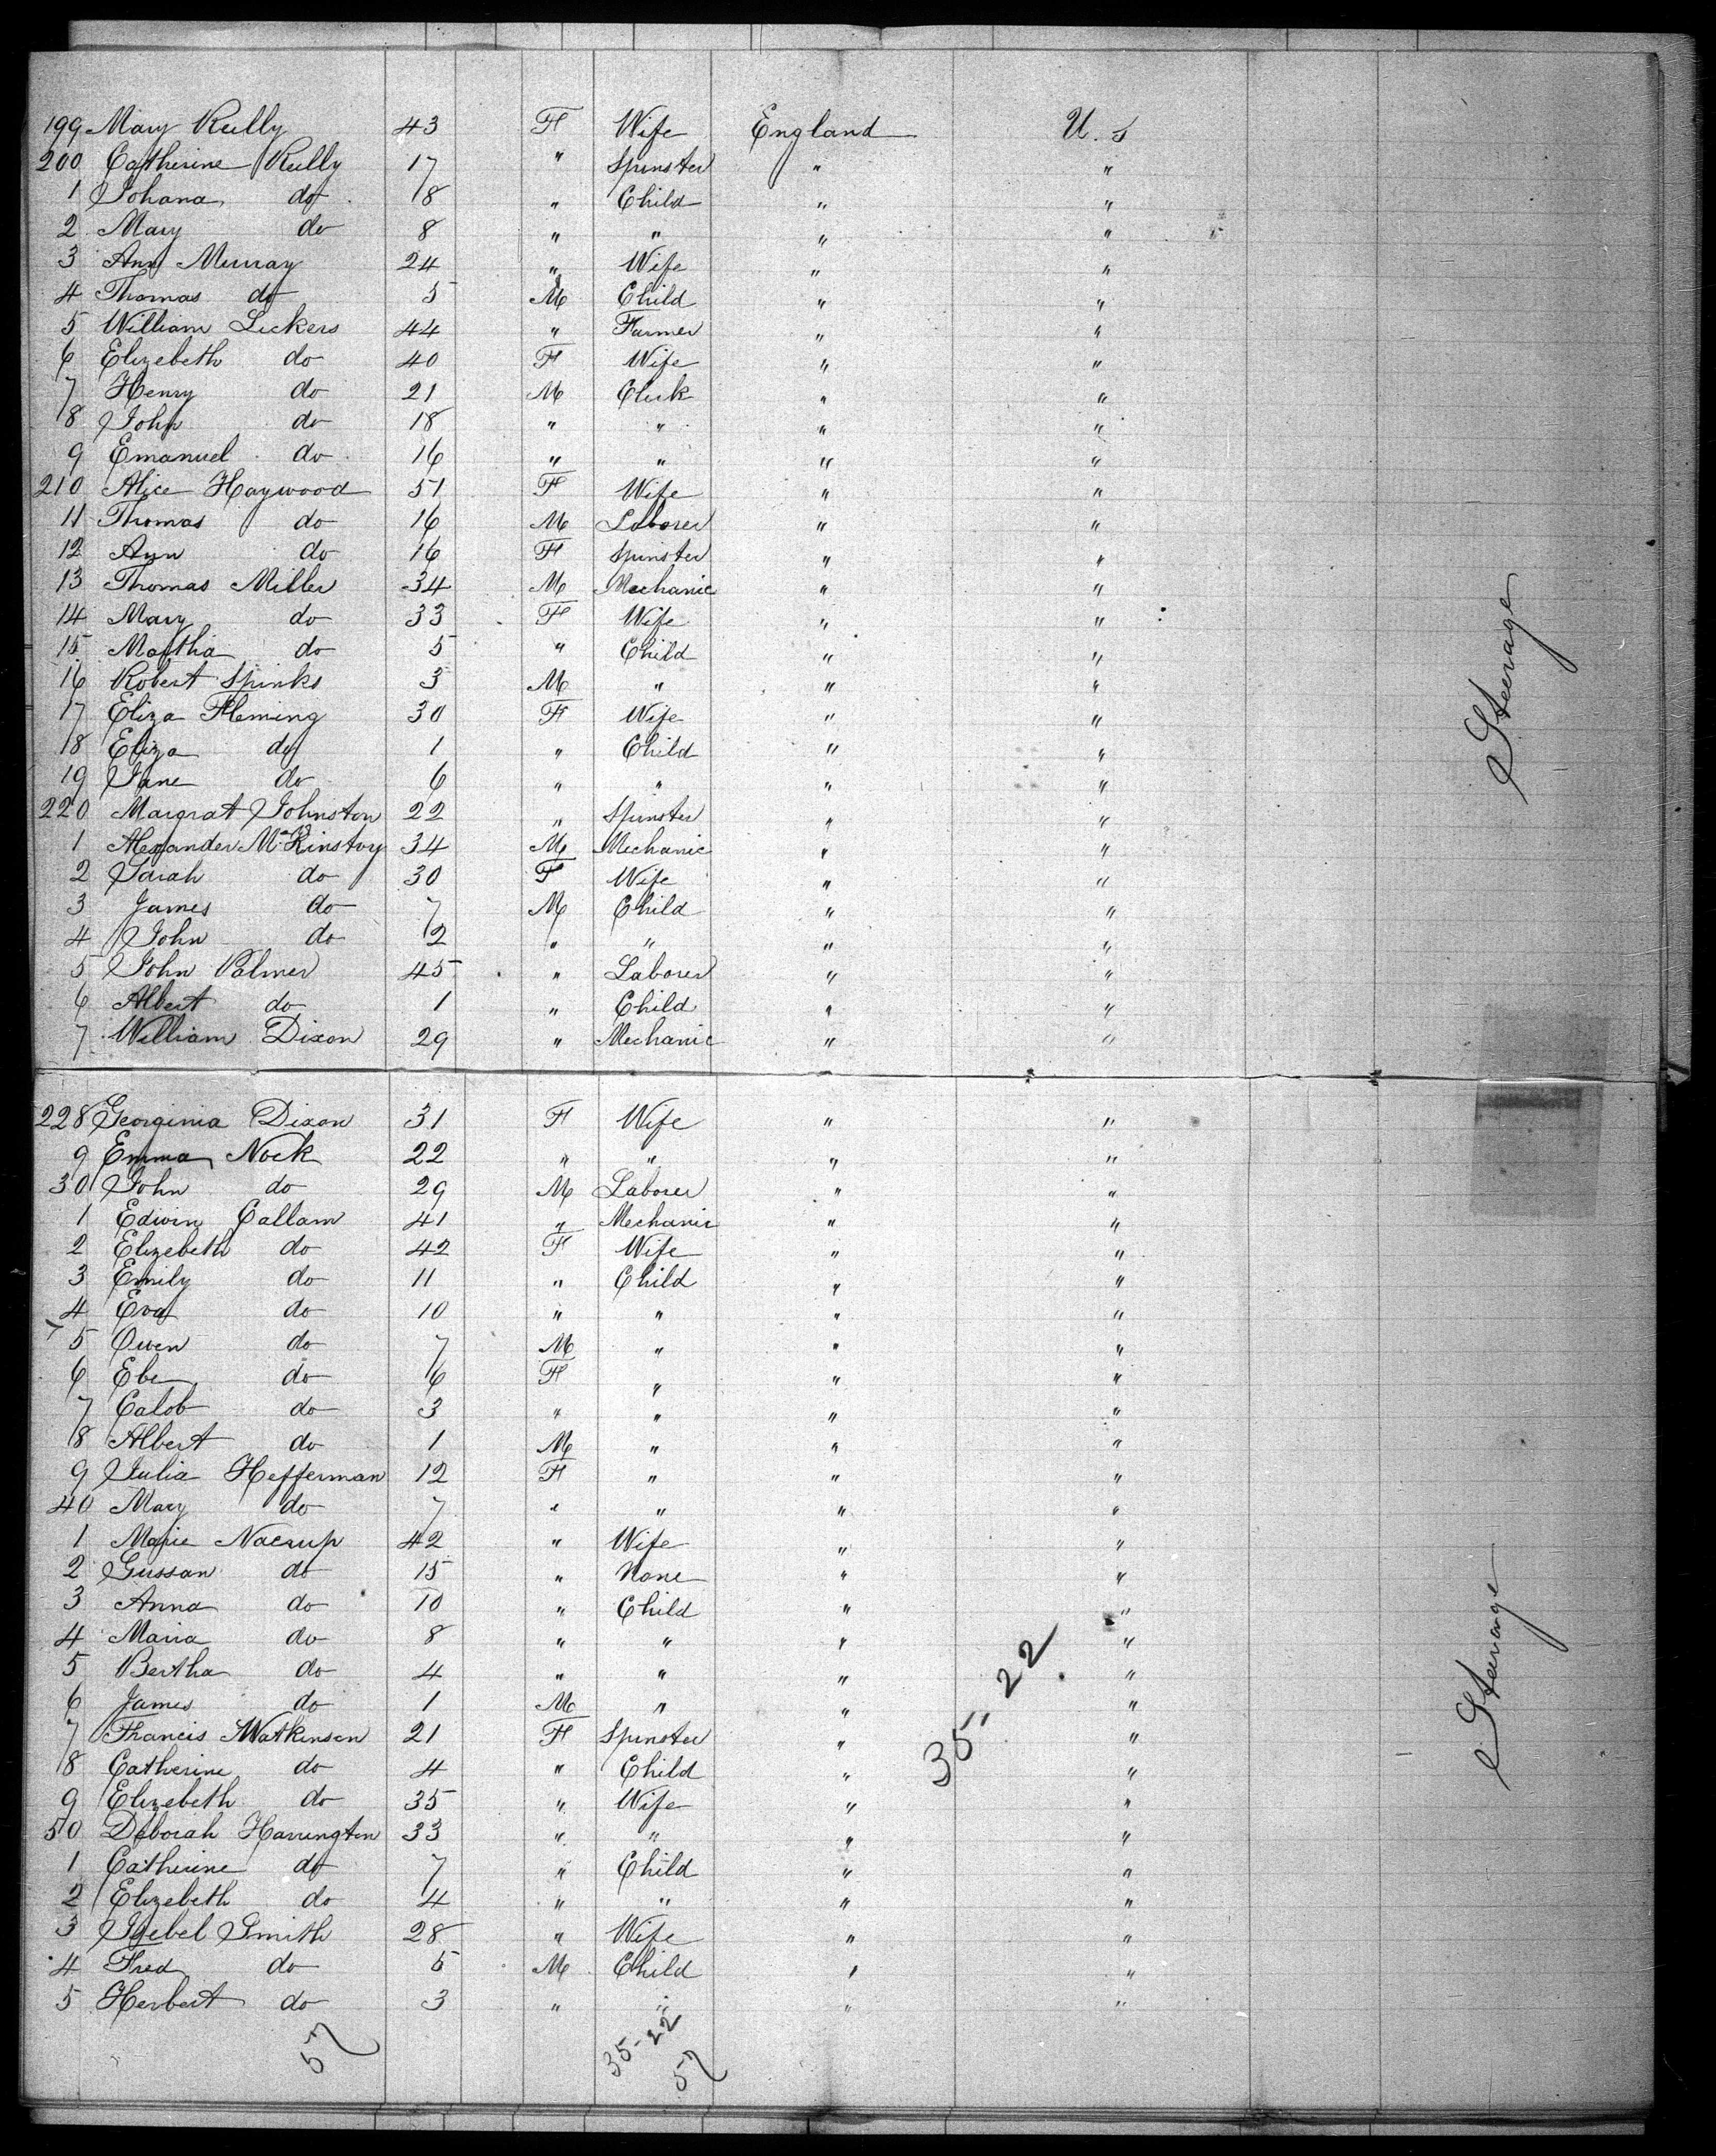 199 Mary Reilly 43 F Wife England U.S
200 Catherine Reilly 17 " Spinster " "
1 Johana do 18 " Child " "
2 Mary do 8 " " " "
3 Ann Murray 24 " Wife " "
4 Thomas do 5 M Child " "
5 William Lickers 44 " Farmer " "
6 Elizebeth do 40 F Wife " "
7 Henry do 21 M Clerk " "
8 John do 18 " " " "
9 Emanuel do 16 " " " "
210 Alice Haywood 51 F Wife " "
11 Thomas do 16 M Laborer " "
12 Ann do 16 F Spinster " "
13 Thomas Miller 34 M Mechanic " "
14 Mary do 33 F Wife " "
15 Martha do 5 " Child " "
16 Robert Spinks 3 M " " "
17 Eliza Fleming 30 F Wife " "
18 Eliza do 1 " Child " "
19 Jane do 6 " " " "
220 Margrat Johnston 22 " Spinster " "
1 Alexander McKinstry 34 M Mechanic " "
2 Sarah do 30 F Wife " "
3 James do 7 M Child " "
4 John do 2 " " " "
5 John Palmer 45 " Laborer " "
6 Albert do 1 " Child " "
7 William Dixon 29 " Mechanic " "
Steerage
228 Georginia Dixon 31 F Wife " "
9 Emma Nock 22 " " " "
30 John do 29 M Laborer " "
1 Edwin Callam 41 " Mechanic " "
2 Elizebeth do 42 F Wife " "
3 Emily do 11 " Child " "
4 Eva do 10 " " " "
5 Owen do 7 M " " "
6 Eben do 6 F " " "
7 Calob do 3 " " " "
8 Albert do 1 M " " "
9 Julia Hefferman 12 F " " "
40 Mary do 7 " " " "
1 Marie 42 " Wife " "
2 Gussan do 15 " None " "
3 Anna do 10 " Child " "
4 Maria do 8 " " " "
5 Bertha do 4 " " " "
6 James do 1 M " " "
7 Francis Watkinson 21 F Spinster " "
8 Catherine do 4 " Child " "
9 Elizebeth do 35 " Wife " "
50 Deborah Harrington 33 " " " "
1 Catherine do 7 " Child " "
2 Elizebeth do 4 " " " "
3 Isebel Smith 28 " Wife " "
4 Fred do 5 M Child " "
5 Herbert do 3 " " " "
35-22
Steerage
57
35-22
57